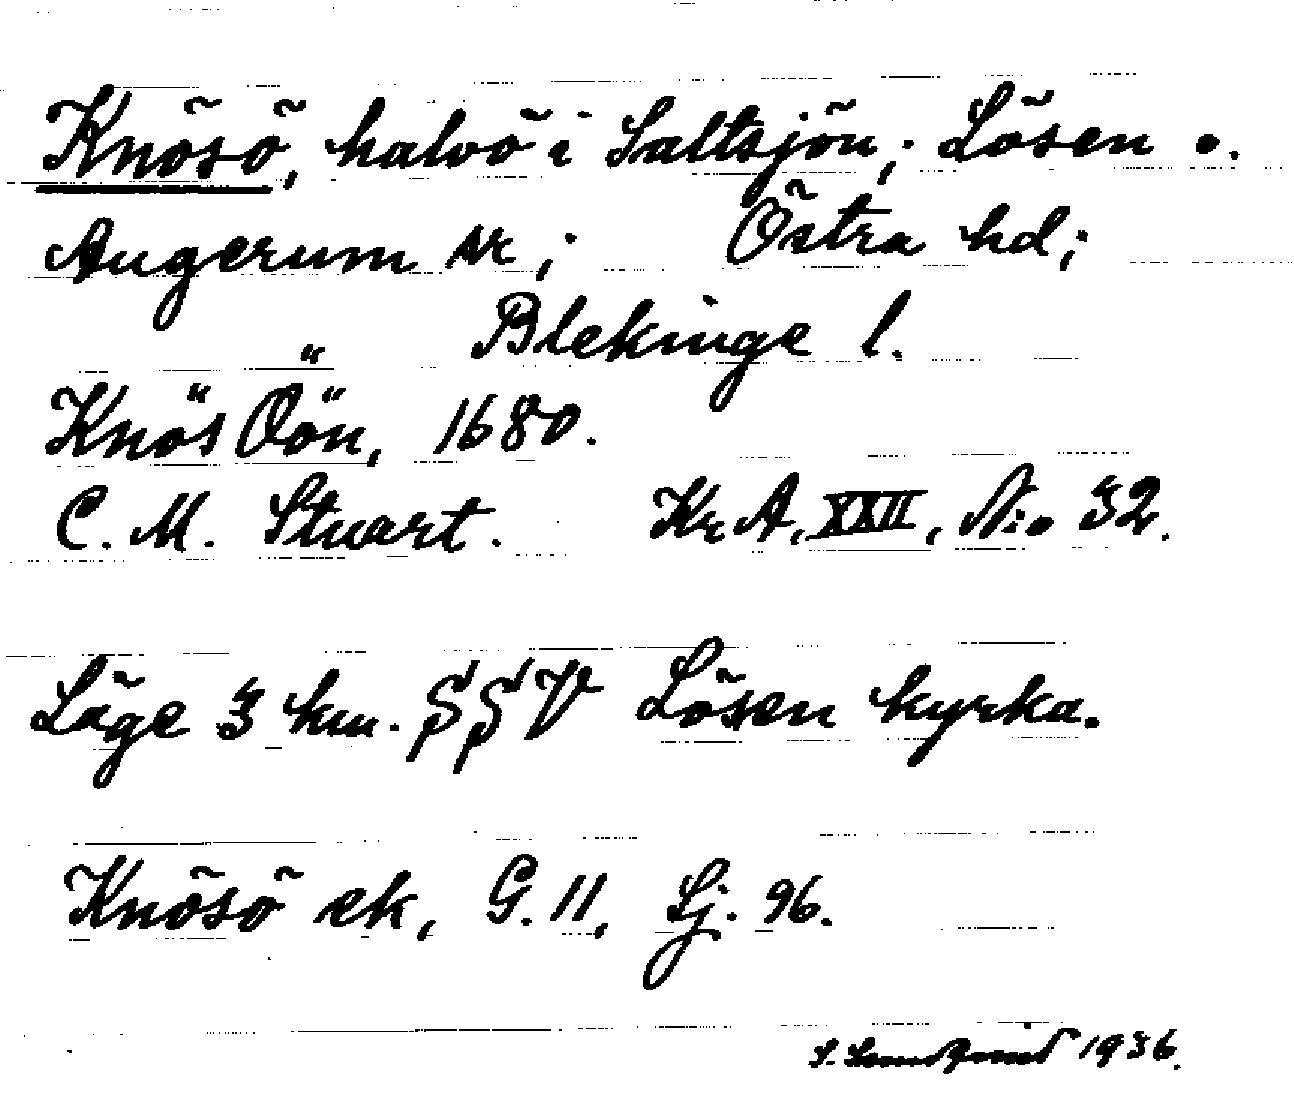 Knösö, halvö i Saltsjön; Lösen o.
Augerum sr; Östra hd;
Blekinge l.
Knös Öön, 1680.
C. M. Stuart. Kr. A. XXII, N:o 32.
Läge 3 km. SSV Lösen kyrka.
Knösö ek, G. 11, Sj. 96.
1936.